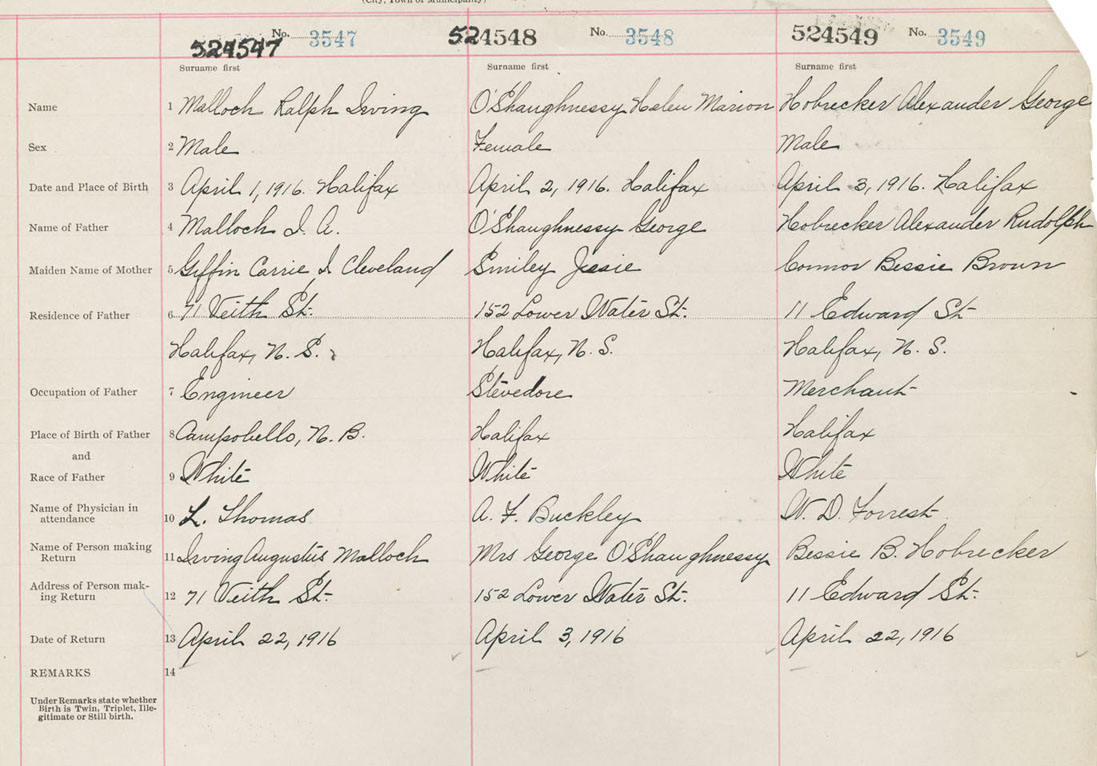 (City, Town or Municipality)
524547 No. 3547 524548 No. 3548 524549 No. 3549
Surname first Surname first Surname first
Name 1 Malloch Ralph Irving O'Shaughnessy Helen Marion Hobrecker Alexander George
Sex 2 Male Female Male
Date and Place of Birth 3 April 1, 1916. Halifax April 2, 1916. Halifax April 3, 1916. Halifax
Name of Father 4 Malloch I. A. O'Shaughnessy George Hobrecker Alexander Rudolph
Maiden Name of Mother 5 Giffin Carrie I Cleveland Smiley Jessie Connor Bessie Brown
Residence of Father 6 71 Veith St. 152 Lower Water St. 11 Edward St.
Halifax, N. S. Halifax, N. S. Halifax, N. S.
Occupation of Father 7 Engineer Stevedore Merchant
Place of Birth of Father 8 Campobello, N. B. Halifax Halifax
and
Race of Father 9 White White White
Name of Physician in
attendance 10 L. Thomas A. F. Buckley W. D. Forrest
Name of Person making
Return 11 Irving Augustus Malloch Mrs George O'Shaughnessy Bessie B. Hobrecker
Address of Person mak-
ing Return 12 71 Veith St. 152 Lower Water St. 11 Edward St.
Date of Return 13 April 22, 1916 April 3, 1916 April 22, 1916
REMARKS 14
Under Remarks state whether
Birth is Twin, Triplet, Ille-
gitimate or Still birth.